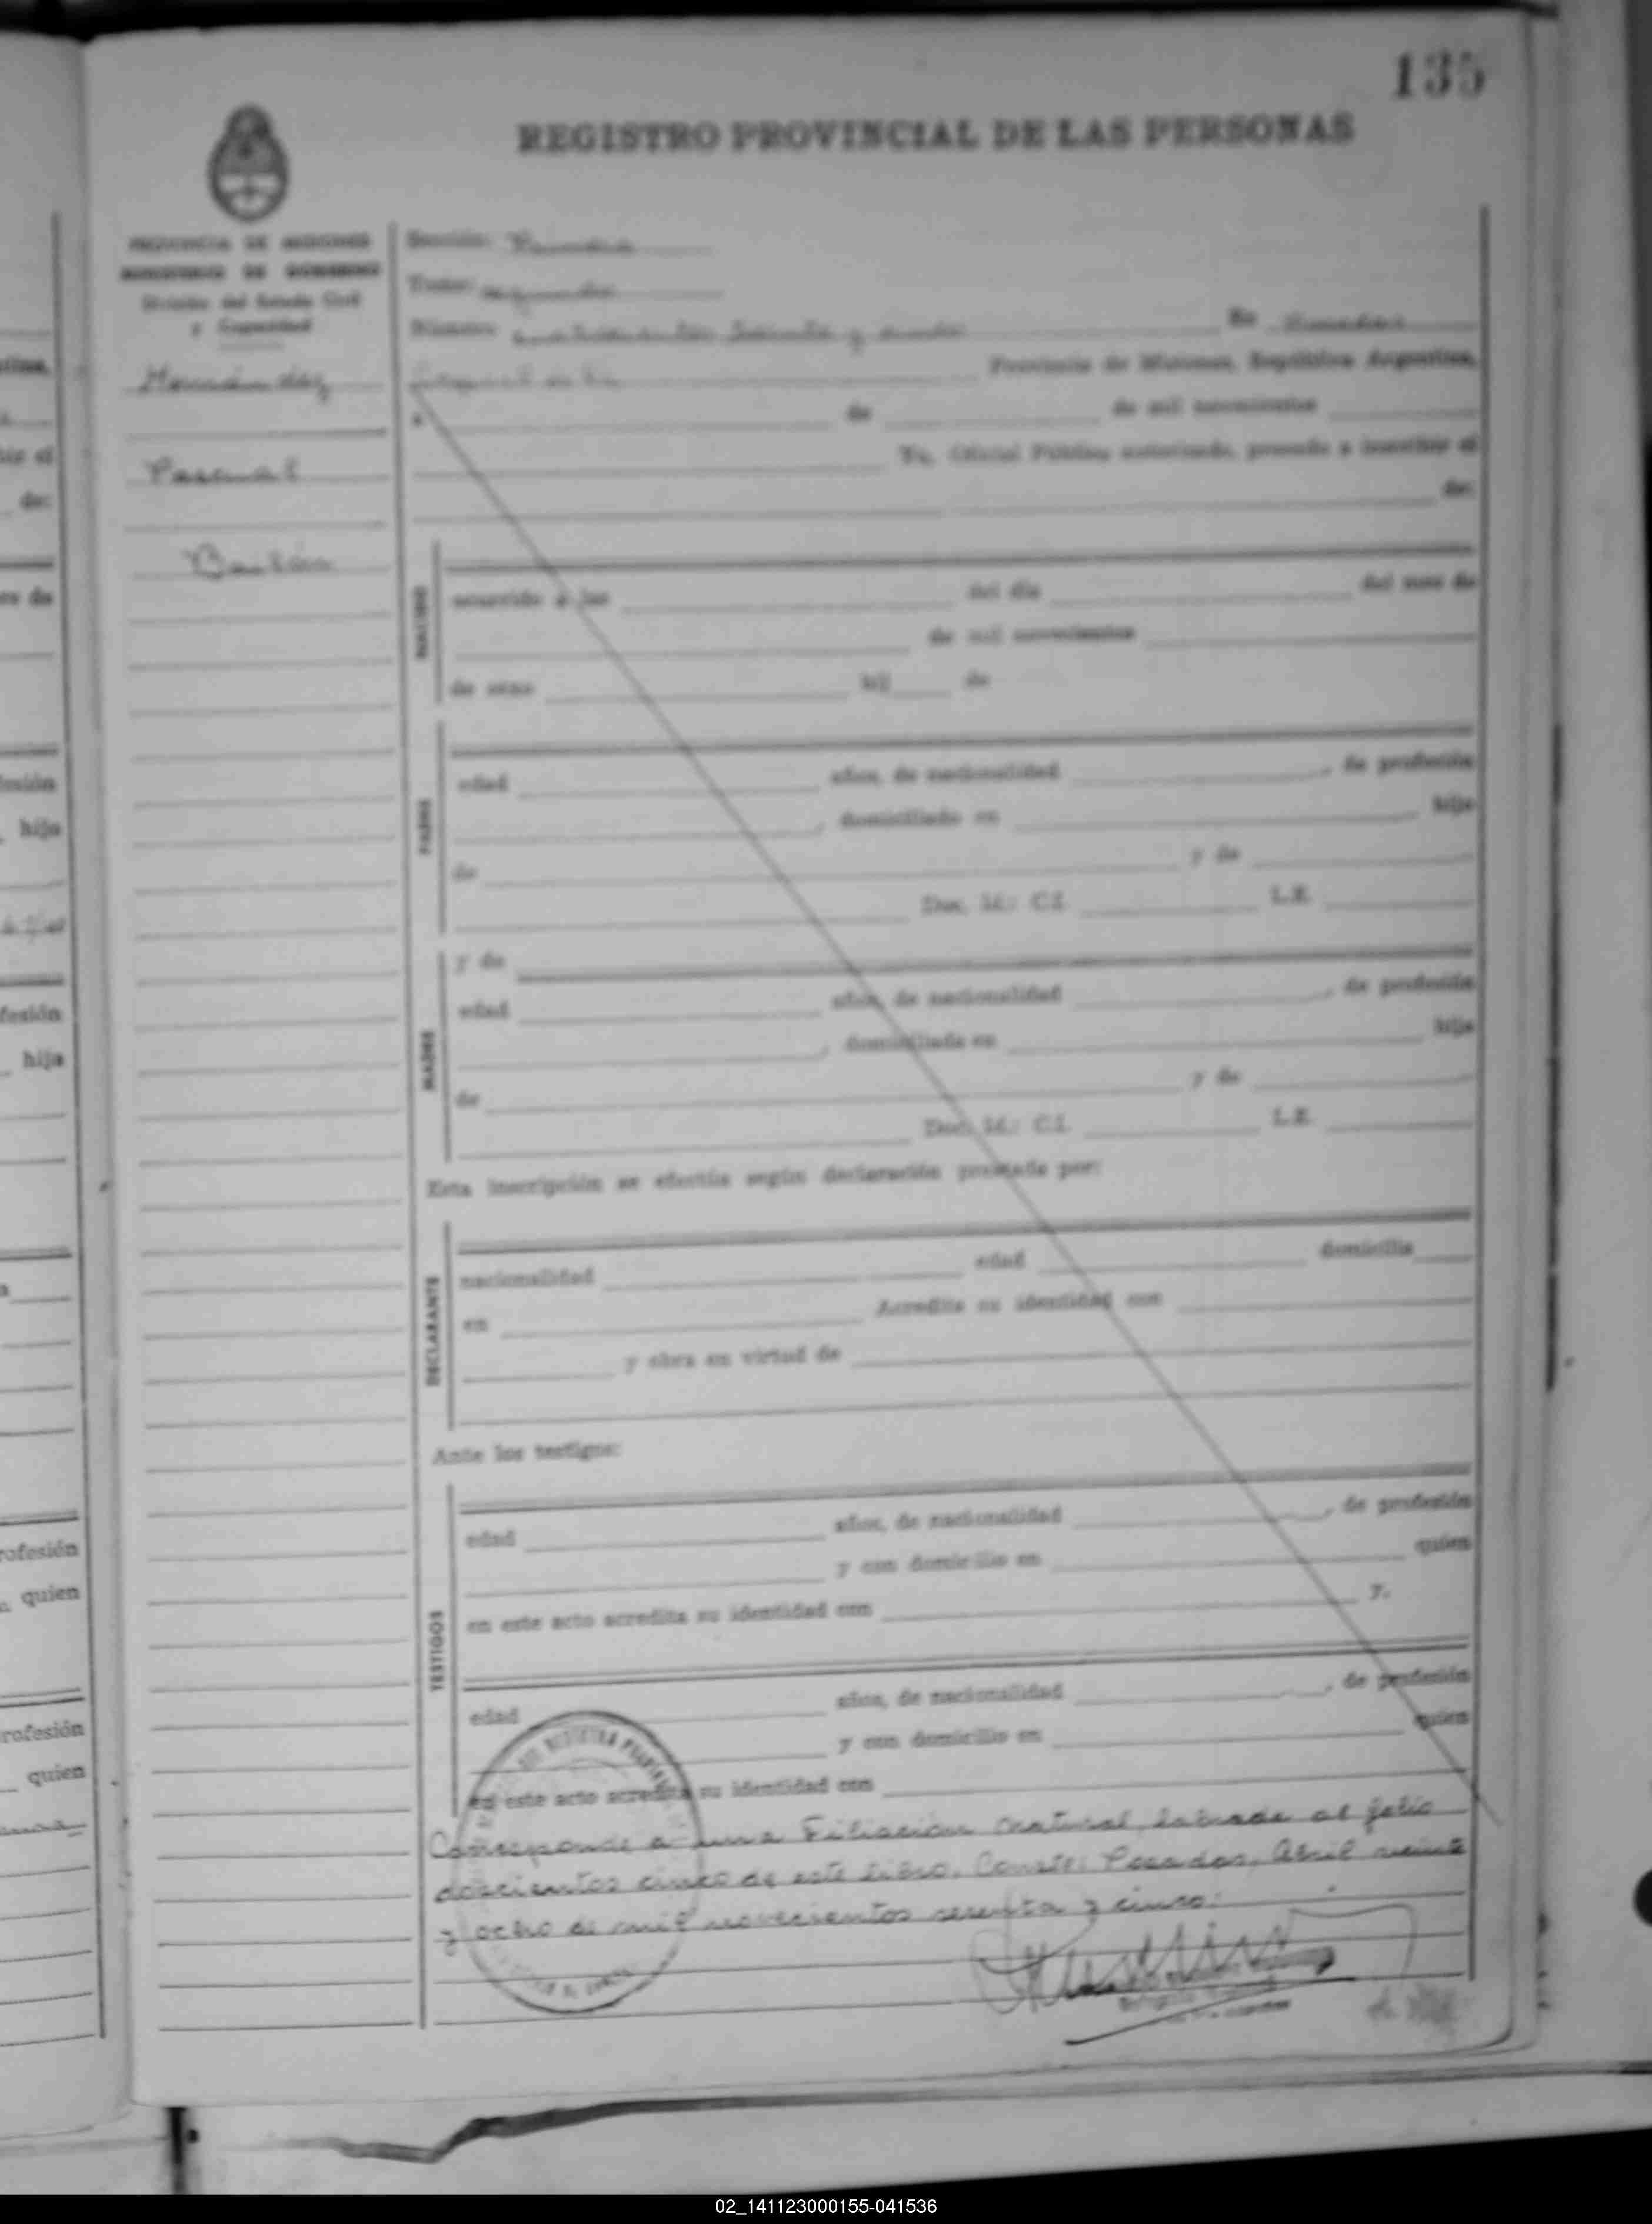 135
REGISTRO PROVINCIAL DE LAS PERSONAS
PROVINCIA DE MISIONES
MINISTERIO DE GOBIERNO
División del Estado Civil
y Capacidad
Hernández
Pascual
Bailón
Sección: Primera
Tomo: segundo
Número: cuatrocientos En Posadas
Provincia de Misiones, República Argentina,
a de de mil novecientos
Yo, Oficial Público autorizado, procedo a inscribir el
de:
ocurrido a las del día del mes de
de mil novecientos
de sexo hij de
PADRE
edad años, de nacionalidad , de profesión
, domiciliado en hijo
de y de
Doc. Id.: C.I. L.E.
MADRE
y de
edad años, de nacionalidad , de profesión
, domiciliada en hija
de y de
Doc. Id.: C.I. L.E.
Esta inscripción se efectúa según declaración prestada por:
DECLARANTE
nacionalidad edad domicilia
en Acredita su identidad con
y obra en virtud de
Ante los testigos:
TESTIGOS
edad años, de nacionalidad , de profesión
y con domicilio en quien
en este acto acredita su identidad con y.
edad años, de nacionalidad , de profesión
y con domicilio en quien
en este acto acredita su identidad con
Corresponde a una Filiación Natural, labrada al folio
doscientos cinco de este libro. Conste: Posadas, Abril veinte
y ocho de mil novecientos sesenta y cinco:
02_141123000155-041536